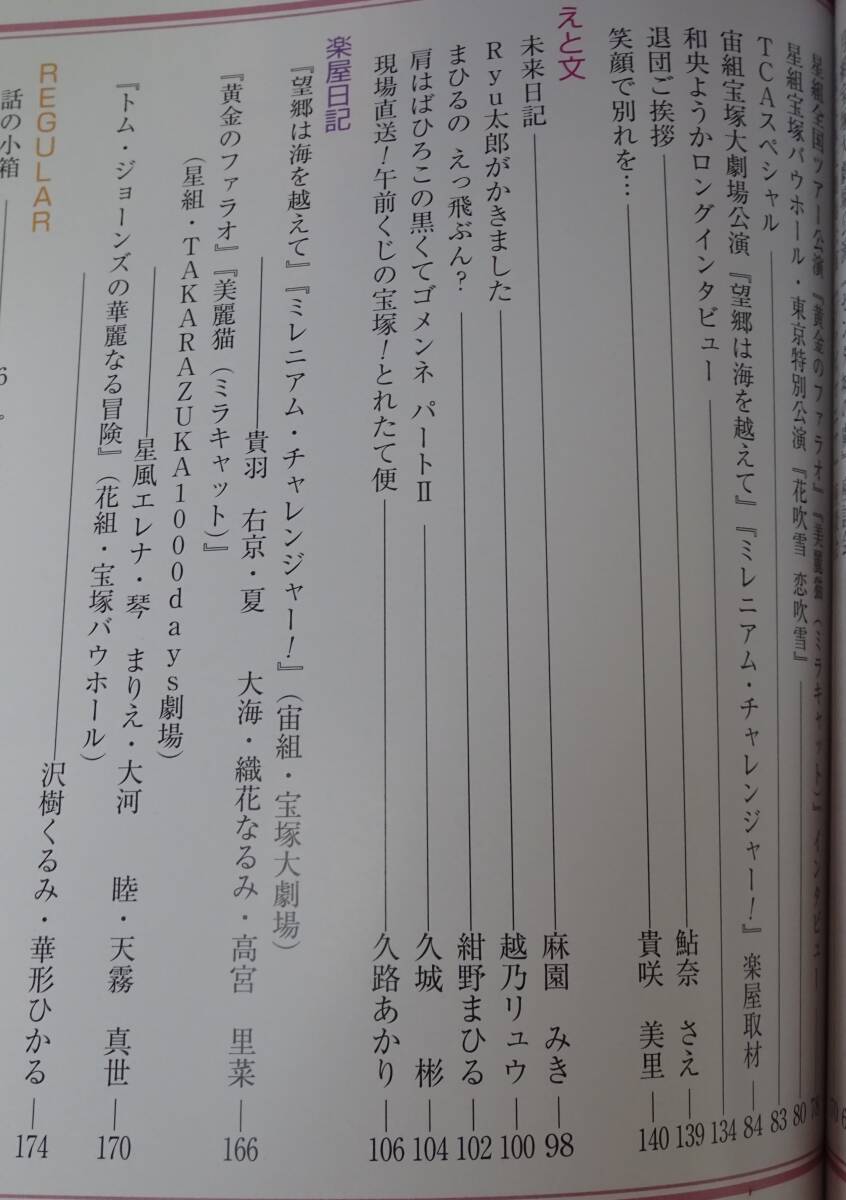 星組全国ツアー公演『黄金のファラオ』『美麗猫（ミラキャット）』インタビュー 78
星組宝塚バウホール・東京特別公演『花吹雪 恋吹雪』 80
TCAスペシャル 83
宙組宝塚大劇場公演『望郷は海を越えて』『ミレニアム・チャレンジャー！』楽屋取材 84
和央ようかロングインタビュー 134
退団ご挨拶 鮎奈 さえ 139
笑顔で別れを… 貴咲 美里 140
えと文
未来日記 麻園 みき 98
Ryu太郎がかきました 越乃リュウ 100
まひるの えっ飛ぶん？ 紺野まひる 102
肩はばひろこの黒くてゴメンネ パートⅡ 久城 彬 104
現場直送！午前くじの宝塚！とれたて便 久路あかり 106
楽屋日記
『望郷は海を越えて』『ミレニアム・チャレンジャー！』（宙組・宝塚大劇場）
貴羽 右京・夏 大海・織花なるみ・高宮 里菜 166
『黄金のファラオ』『美麗猫（ミラキャット）』
（星組・TAKARAZUKA1000days劇場）
星風エレナ・琴 まりえ・大河 睦・天霧 真世 170
『トム・ジョーンズの華麗なる冒険』（花組・宝塚バウホール）
沢樹くるみ・華形ひかる 174
REGULAR
話の小箱